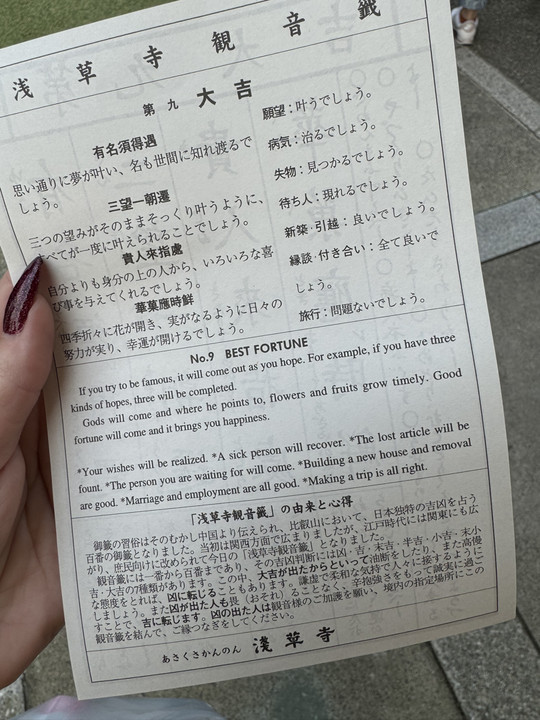 浅草寺観音籤
第九 大吉
有名須得遇
思い通りに夢が叶い、名も世間に知れ渡るで
しょう。
三望一朝遷
三つの望みがそのままそっくり叶うように、
すべてが一度に叶えられることでしょう。
貴人來指處
自分よりも身分の上の人から、いろいろな喜
び事を与えてくれるでしょう。
華菓應時鮮
四季折々に花が開き、実がなるように日々の
努力が実り、幸運が開けるでしょう。
願望:叶うでしょう。
病気:治るでしょう。
失物:見つかるでしょう。
待ち人:現れるでしょう。
新築·引越:良いでしょう。
縁談·付き合い:全て良いで
しょう。
旅行:問題ないでしょう。
No.9 BEST FORTUNE
If you try to be famous, it will come out as you hope. For example, if you have three
kinds of hopes, three will be completed.
Gods will come and where he points to, flowers and fruits grow timely. Good
fortune will come and it brings you happiness.
*Your wishes will be realized. *A sick person will recover. *The lost article will be
fount. *The person you are waiting for will come. *Building a new house and removal
are good. *Marriage and employment are all good. *Making a trip is all right.
「浅草寺観音籤」の由来と心得
御籤の習俗はそのむかし中国より伝えられ、比叡山において、日本独特の吉凶を占う
百番の御籤となりました。当初は関西方面で広まりましたが、江戸時代には関東にも広
がり、庶民向けに改められて今日の「浅草寺観音籤」となりました。
観音籤には一番から百番まであり、その吉凶判断には凶·吉·末吉·半吉·小吉·末小
吉·大吉の7種類があります。この中、大吉が出たからといって油断をしたり、また高慢
な態度をとれば、凶に転じることもあります。謙虚で柔和な気持で人々に接するように
しましょう。また凶が出た人も畏(おそれ)ることなく、辛抱強さをもって誠実に過ご
すことで、吉に転じます。凶の出た人は観音様のご加護を願い、境内の指定場所にこの
観音籤を結んで、ご縁つなぎをしてください。
あさくさかんのん 浅草寺